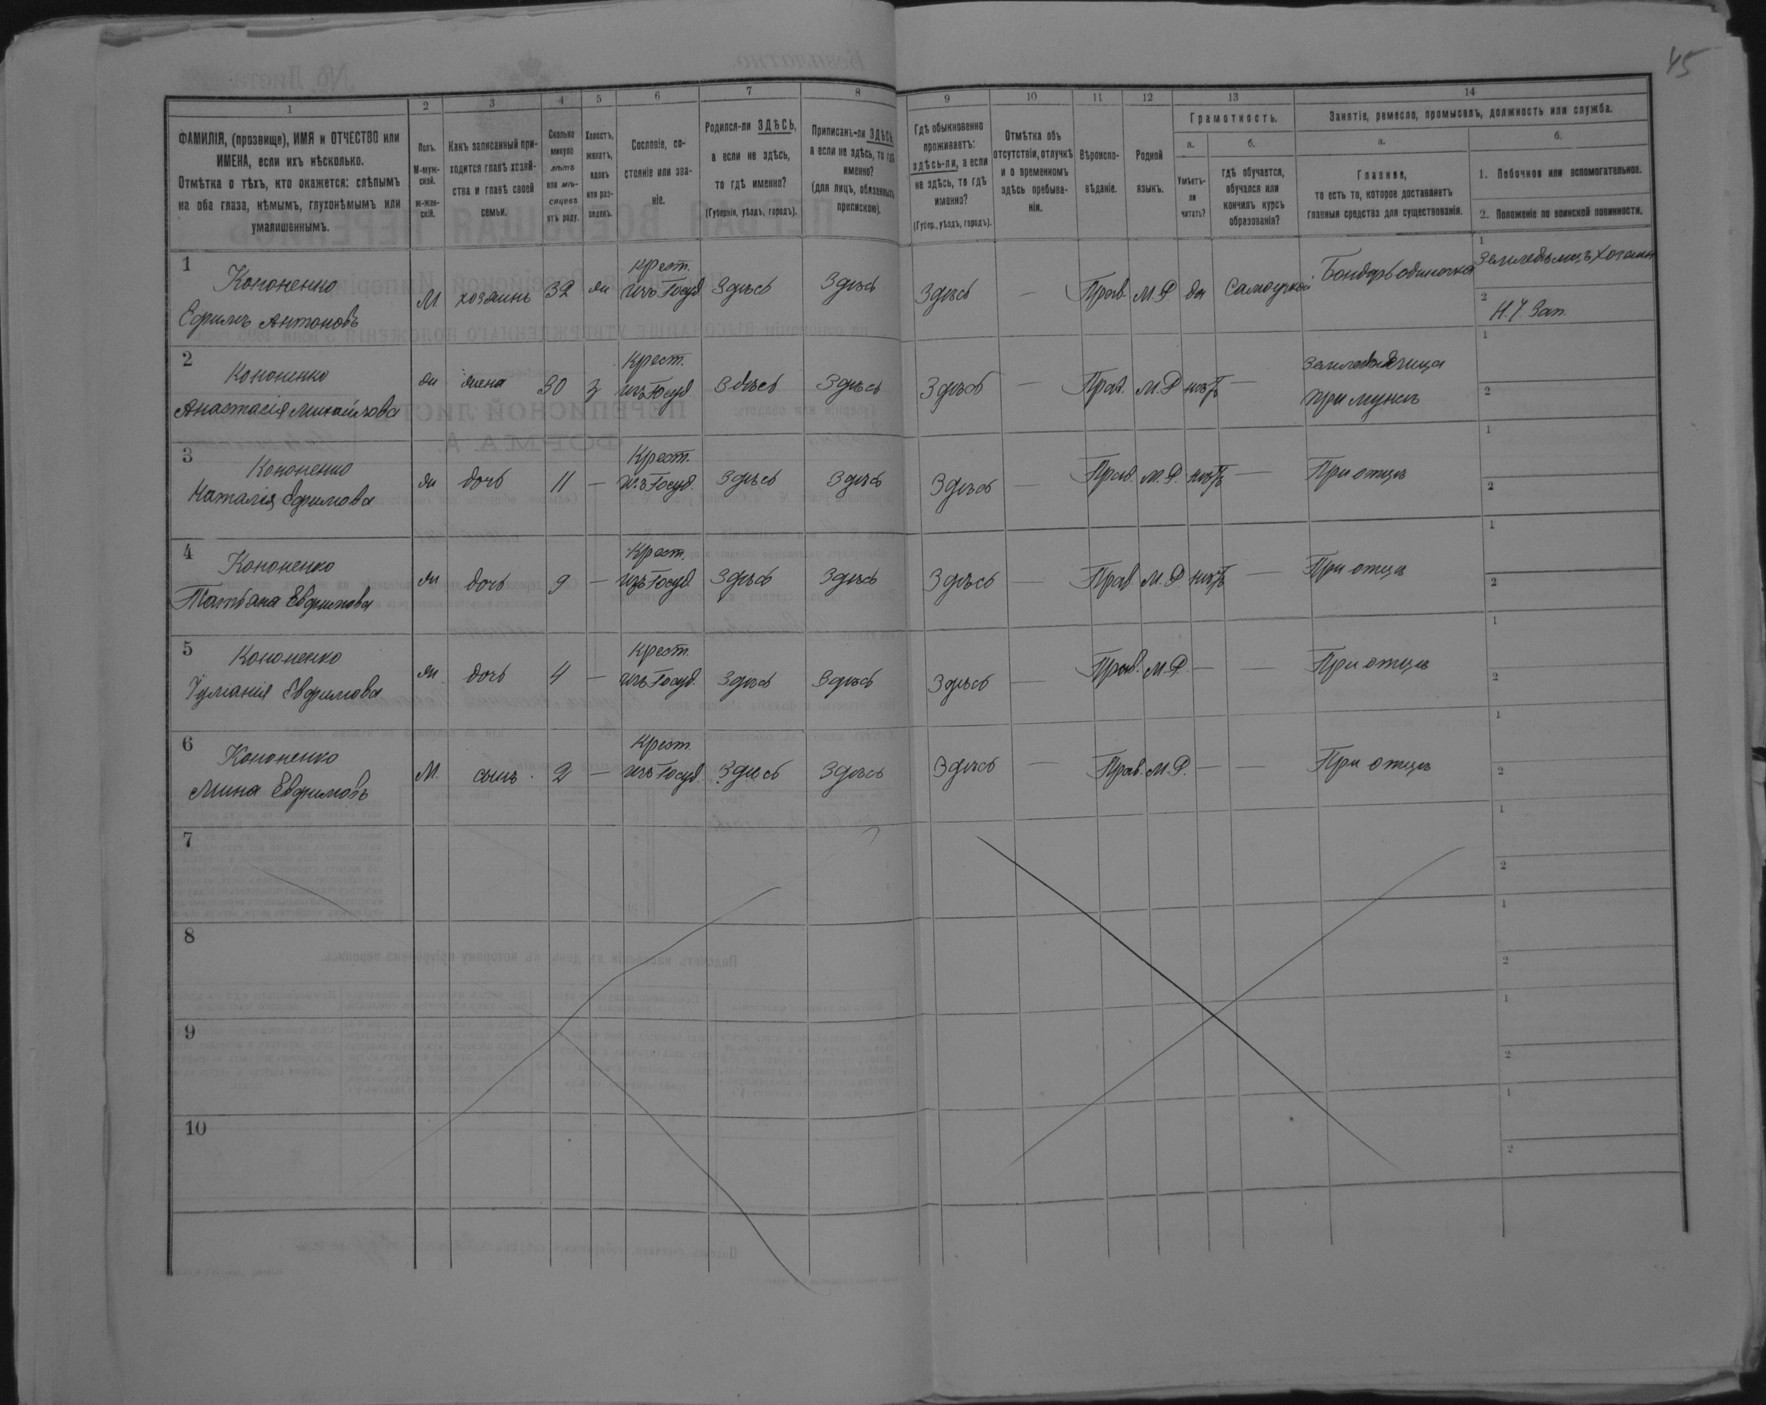 45
1 2 3 4 5 6 7 8 9 10 11 12 13 14
ФАМИЛІЯ, (прозвище), ИМЯ и ОТЧЕСТВО или
ИМЕНА, если ихъ нѣсколько.
Отмѣтка о тѣхъ, кто окажется: слѣпымъ
на оба глаза, нѣмымъ, глухонѣмымъ или
умалишеннымъ.
Полъ.
М-муж-
ской.
ж-жен-
скій.
Какъ записанный при-
ходится главѣ хозяй-
ства и главѣ своей
семьи.
Сколько
минуло
лѣтъ
или мѣ-
сяцевъ
отъ роду.
Холостъ,
женатъ,
вдовъ
или раз-
веденъ.
Сословіе, со-
стояніе или зва-
ніе.
Родился-ли ЗДѢСЬ,
а если не здѣсь,
то гдѣ именно?
(Губернія, уѣздъ, городъ).
Приписанъ-ли ЗДѢСЬ,
а если не здѣсь, то гдѣ
именно?
(для лицъ, обязанныхъ
припискою).
Гдѣ обыкновенно
проживаетъ:
здѣсь-ли, а если
не здѣсь, то гдѣ
именно?
(Губер., уѣздъ, городъ).
Отмѣтка объ
отсутствіи, отлучкѣ
и о временномъ
здѣсь пребыва-
ніи.
Вѣроиспо-
вѣданіе.
Родной
языкъ.
Грамотность.
а.
Умѣетъ-
ли
читать?
б.
Гдѣ обучается,
обучался или
кончилъ курсъ
образованія?
Занятіе, ремесло, промыселъ, должность или служба.
а.
Главное,
то есть то, которое доставляетъ
главныя средства для существованія.
б.
1. Побочное или вспомогательное.
2. Положеніе по воинской повинности.
1 Кононенко
Ефимъ Антоновъ
М хозяинъ 32 ж
крест.
изъ Госуд
Здѣсь Здѣсь Здѣсь — Прав М.Р да Самоучкой Бондарь одиночка
1 Земледѣлецъ Хозяинъ
2 Н.Ч. Зап.
2 Кононенко
Анастасія Михайлова
ж жена 30 з
Крест.
изъ Госуд
Здѣсь Здѣсь Здѣсь — Прав. М.Р нѣтъ —
Земледѣлица
при мужѣ
1
2
3 Кононенко
Наталія Ефимова
ж дочь 11 —
Крест.
изъ Госуд.
Здѣсь Здѣсь Здѣсь — Прав. М.Р. нѣтъ — При отцѣ
1
2
4 Кононенко
Татьяна Евфимова
ж дочь 9 —
Крест.
изъ Госуд
Здѣсь Здѣсь Здѣсь — Прав М.Р нѣтъ — При отцѣ
1
2
5 Кононенко
Іуліанія Евфимова
ж дочь 4 —
Крест.
изъ Госуд.
Здѣсь Здѣсь Здѣсь — Прав. М.Р. — — При отцѣ
1
2
6 Кононенко
Мина Евфимовъ
М. сынъ. 2 —
Крест.
изъ Госуд.
Здѣсь Здѣсь Здѣсь — Прав. М.Р. — — При отцѣ
1
2
7
1
2
8
1
2
9
1
2
10
1
2